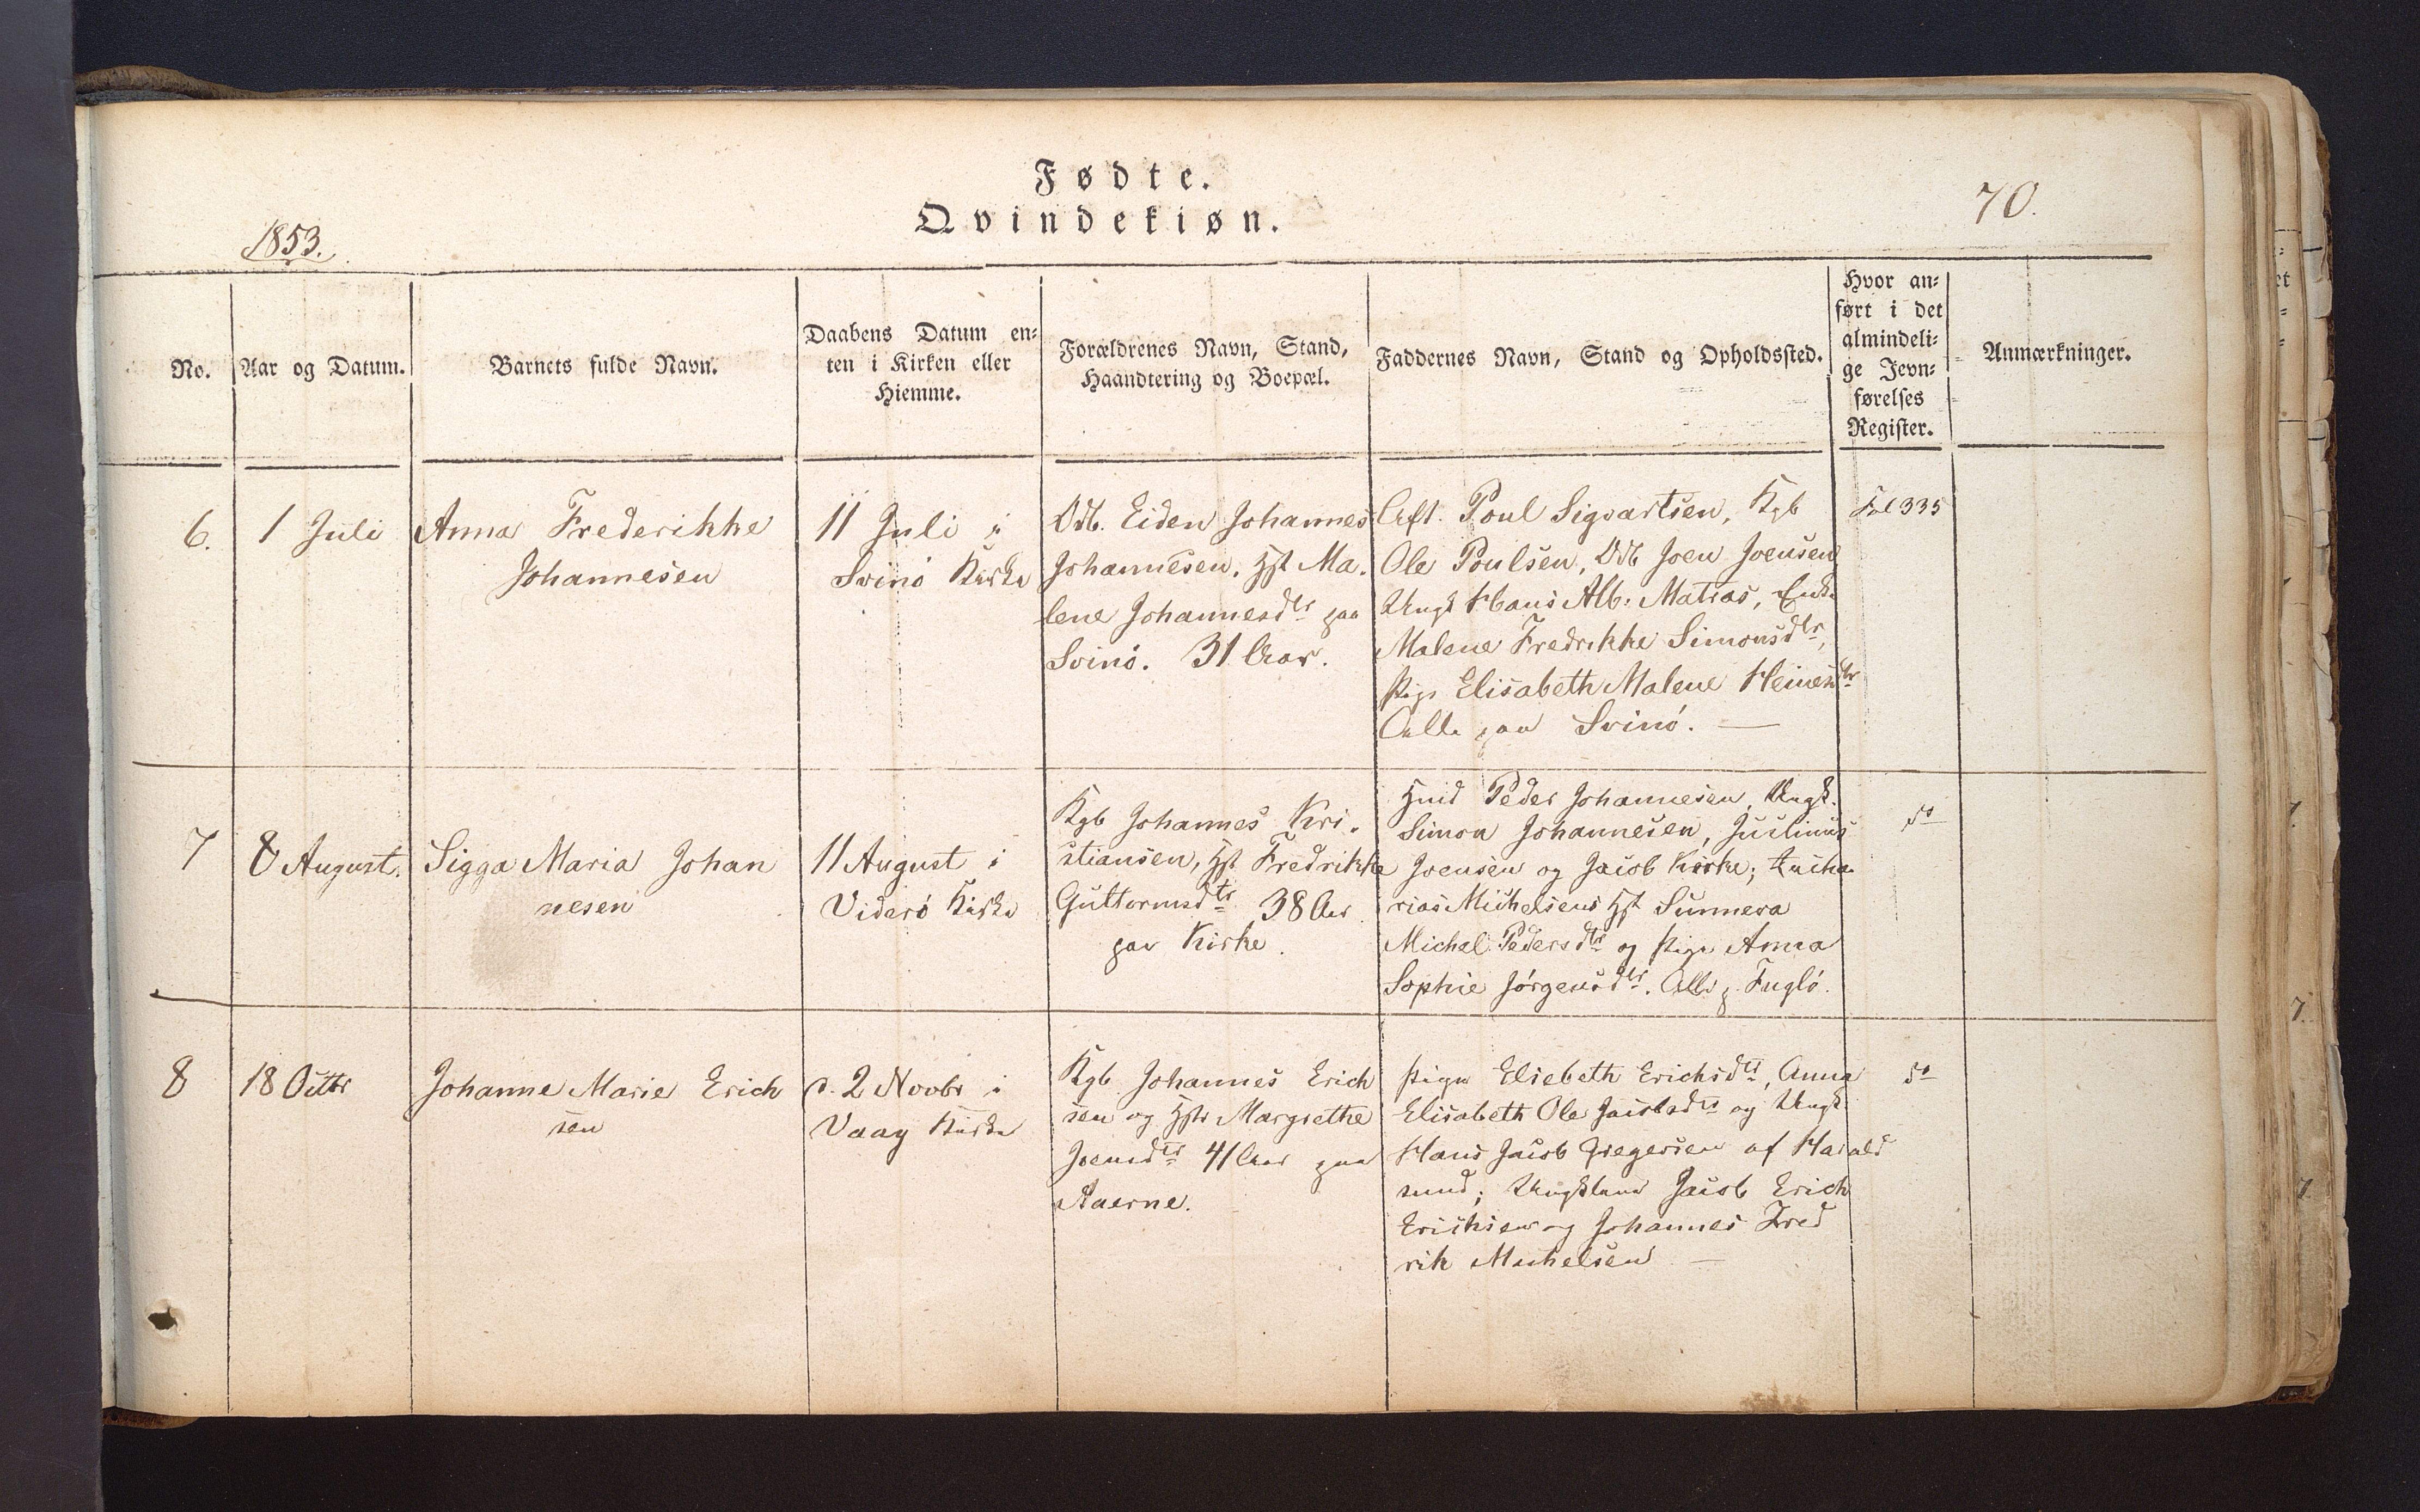 Fødte.
Qvindekiøn.
70.
1853.
No.
Aar og Datum.
Barnets fulde Navn.
Daabens Datum en-
ten i Kirken eller
Hiemme.
Forældrenes Navn, Stand,
Haandtering og Boepæl.
Faddernes Navn, Stand og Opholdssted.
Hvor an-
ført i det
almindeli-
ge Jevn-
førelses
Register.
Anmærkninger.
6.
1 Juli
Anna Frederikke
Johannesen
11 Juli i
Svinö Kirke
Odb. Eiden Johannes
Johannesen, Hst Ma-
lene Johannesdtr paa
Svinö. 31 Aar.
Aft. Poul Sigvartsen, Kgb
Ole Poulsen, Odb Joen Joensen
Ungk Hans Alb. Matras, Enke
Malene Fredrikke Simonsdtr,
Pige Elisabeth Malene Heinesdtr
Alle paa Svinö. —
Fol 335
7
8 August.
Sigga Maria Johan
nesen
11 August i
Viderö Kirke
Kgb Johannes Kri-
stiansen, Hst Fredrikke
Guttormsdtr 38 Aar
paa Kirke.
Hmd Peder Johannesen, Ungk.
Simon Johannesen, Justinus
Joensen og Jacob Kirke; Zacha-
rias Michelsens Hst Sunneva
Michel Pedersdtr og Pige Anna
Sophie Jörgensdtr. Alle p. Fuglö.
do
8
18 Octbr
Johanne Marie Erich
sen
d. 2 Novbr i
Vaag Kirke
Kgb Johannes Erich
sen og Hstr Margrethe
Joensdtr 41 Aar paa
Aaerne.
Pigen Elsebeth Erichsdtr, Anna
Elisabeth Ole Jacobsdtr og Ungk
Hans Jacob Gregersen af Harald
sund; Ungkarl Jacob Erich
Erichsen og Johannes Fred
rik Michelsen —
do